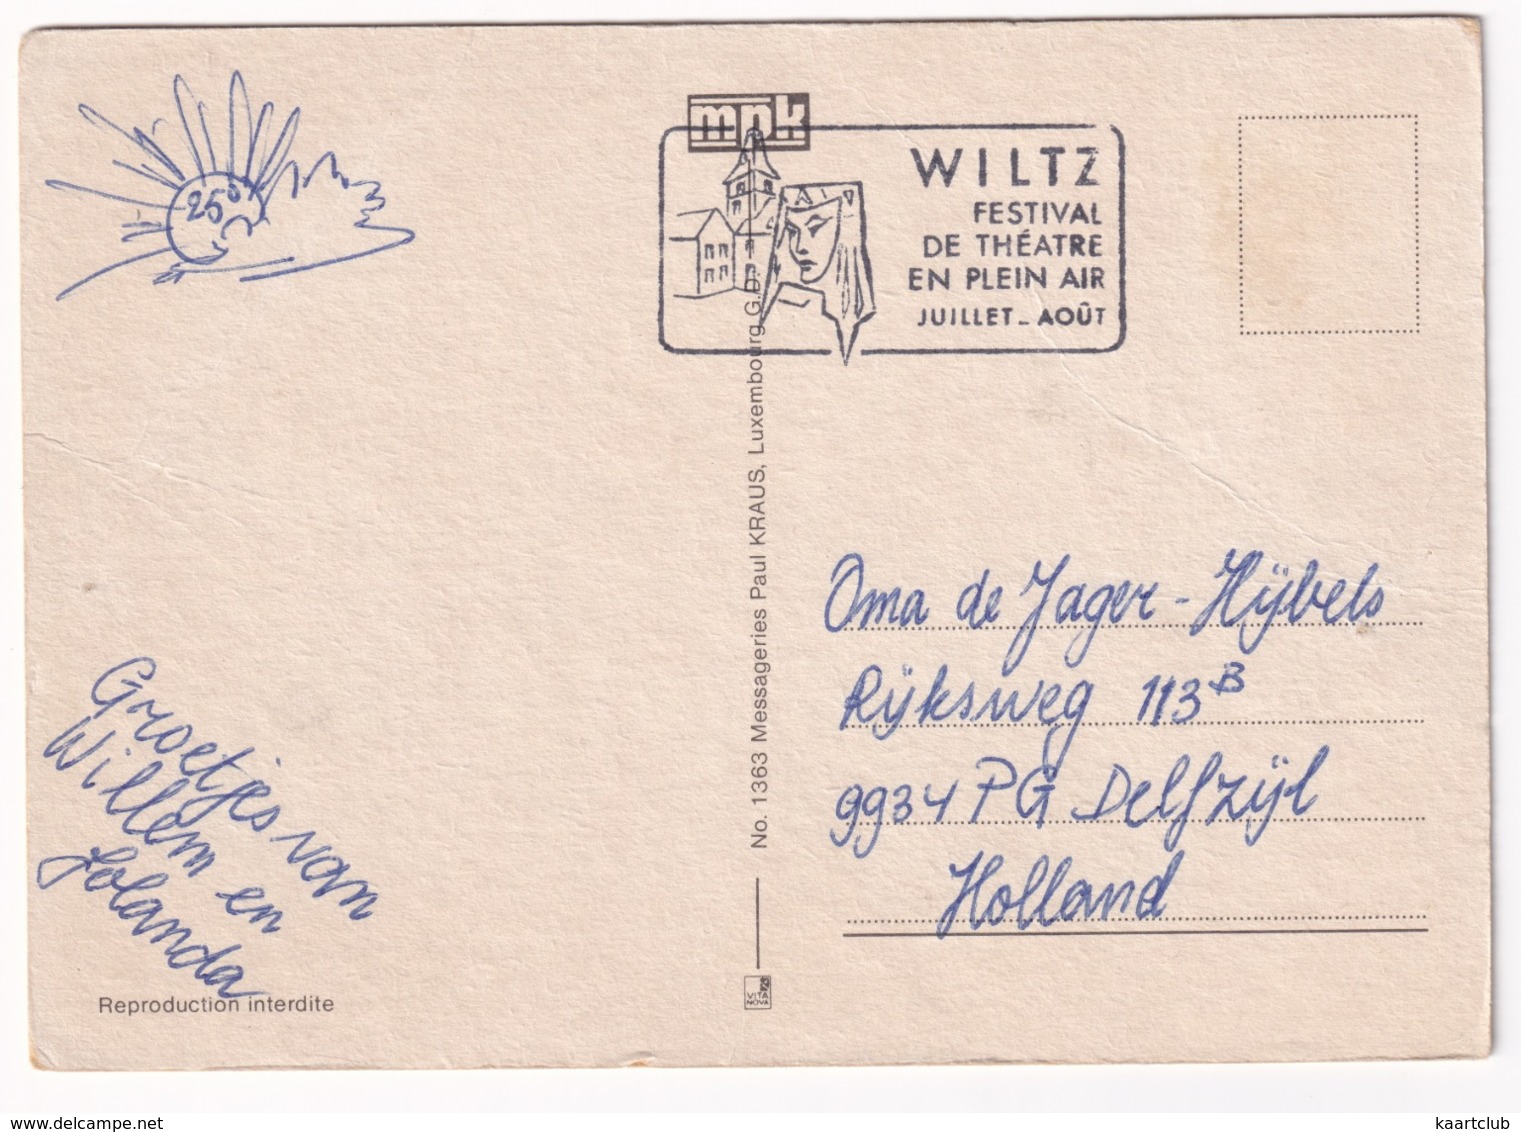 25°
mpk
WILTZ
FESTIVAL
DE THÉATRE
EN PLEIN AIR
JUILLET - AOÛT
No. 1363 Messageries Paul KRAUS, Luxembourg G.D.
Groetjes van
Willem en
Jolanda
Reproduction interdite
VITA
NOVA
Oma de Jager - Hijbels
Rijksweg 113 B
9934 PG Delfzijl
Holland
www.delcampe.net
kaartclub